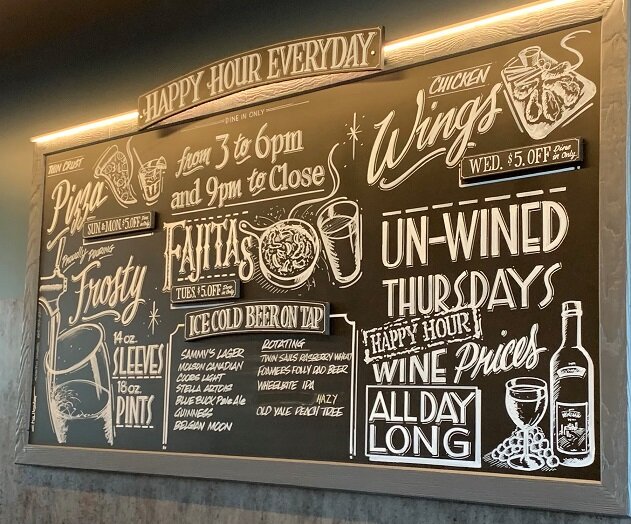 HAPPY HOUR EVERYDAY.
DINE IN ONLY
from 3 to 6pm
and 9pm to Close
THIN CRUST
Pizza
SUN & MON. $5.OFF Dine in Only
Proudly Pouring
Frosty
14 oz.
SLEEVES
18 oz.
PINTS
FAJITAS
TUES. $5.OFF Dine in Only
ICE COLD BEER ON TAP
SAMMY'S LAGER
MOLSON CANADIAN
COORS LIGHT
STELLA ARTOIS
BLUE BUCK Pale Ale
GUINNESS
BELGIAN MOON
ROTATING
TWIN SAILS RASPBERRY
FOLLY RED BEER
IPA
HAZY
OLD YALE PEACH TREE
CHICKEN
Wings
WED. $5.OFF Dine in Only
UN-WINED
THURSDAYS
HAPPY HOUR
WINE Prices
ALL DAY
LONG